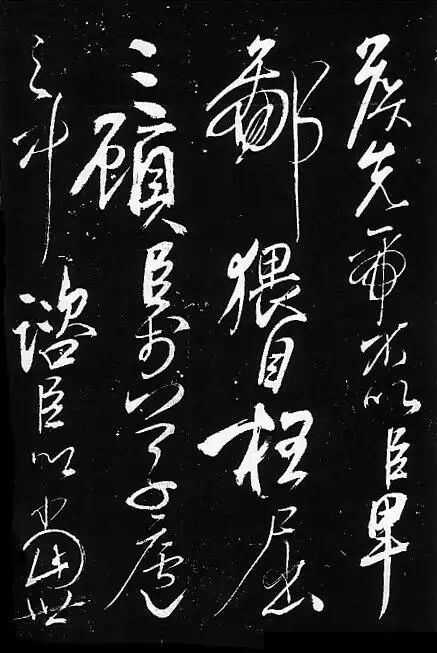 侯先帝不以臣卑
鄙猥自枉屈
三顧臣於草廬
之中諮臣以當世